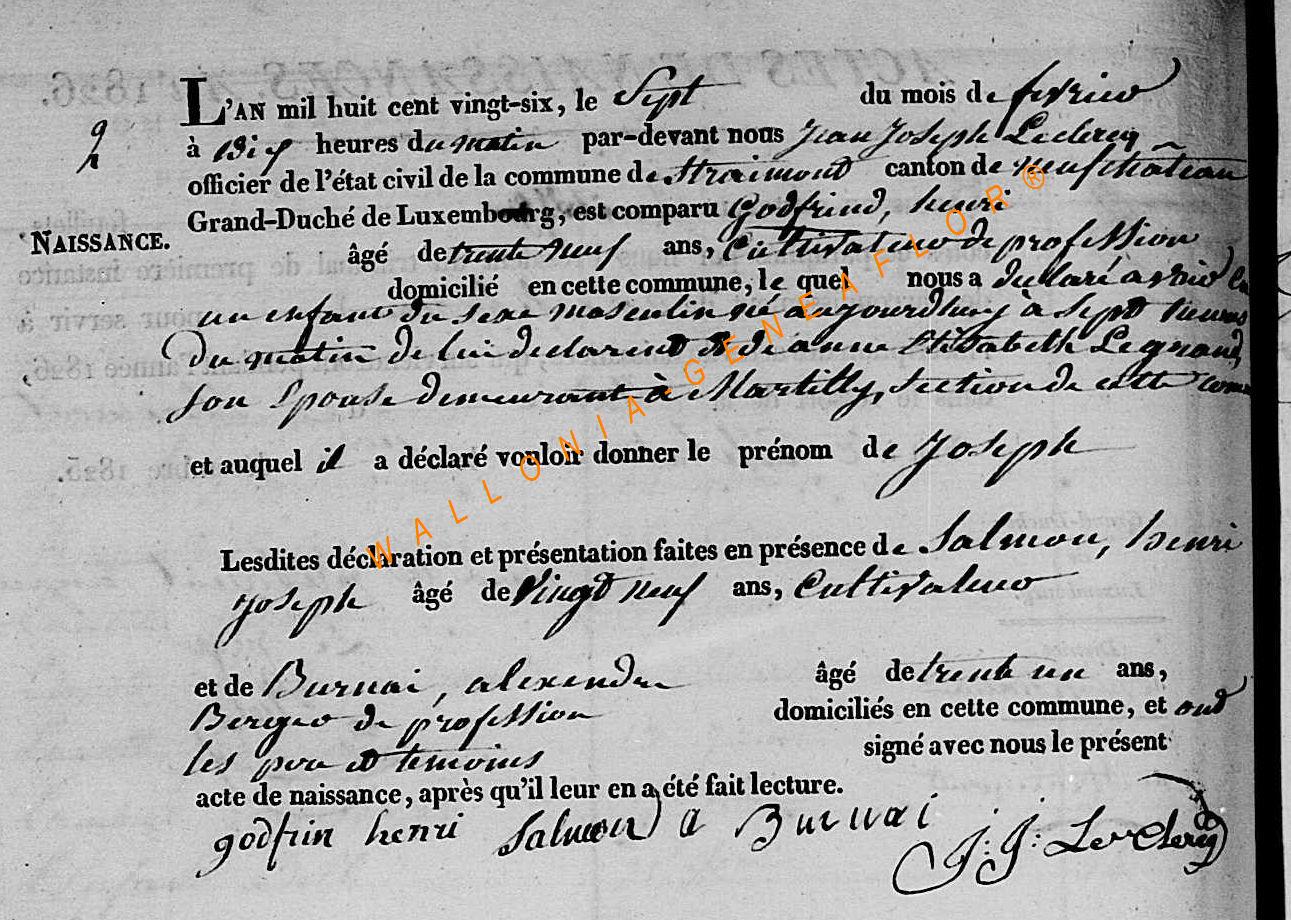 L'AN mil huit cent vingt-six, le Sept du mois de fevrier
2
à dix heures du matin par-devant nous Jean Joseph Leclercq
officier de l'état civil de la commune de Straimont canton de neufchâteau
Grand-Duché de Luxembourg, est comparu Godfrind, henri
NAISSANCE.
âgé de trente neuf ans, Cultivateur de profession
domicilié en cette commune, le quel nous a declaré avoir eu
un enfant du sexe masculin né aujourdhuy à sept heures
du matin de lui declarant et de anne Elisabeth Legrand,
son Epouse demeurant à Martilly, section de cette com
et auquel il a déclaré vouloir donner le prénom de Joseph
Lesdites déclaration et présentation faites en présence de Salmon, henri
Joseph âgé de Vingt neuf ans, Cultivateur
et de Burnai, alexendre âgé de trente un ans,
Berger de profession domiciliés en cette commune, et ont
les pere et temoins signé avec nous le présent
acte de naissance, après qu'il leur en a été fait lecture.
godfrin henri Salmon a Burnai J: J: Leclercq
WALLONIA-GENEAFLOR®